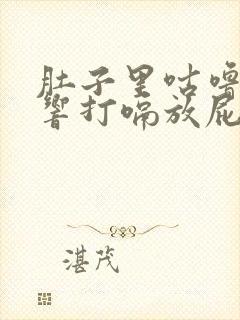 肚子里咕噜
响打嗝放屁
湛茂